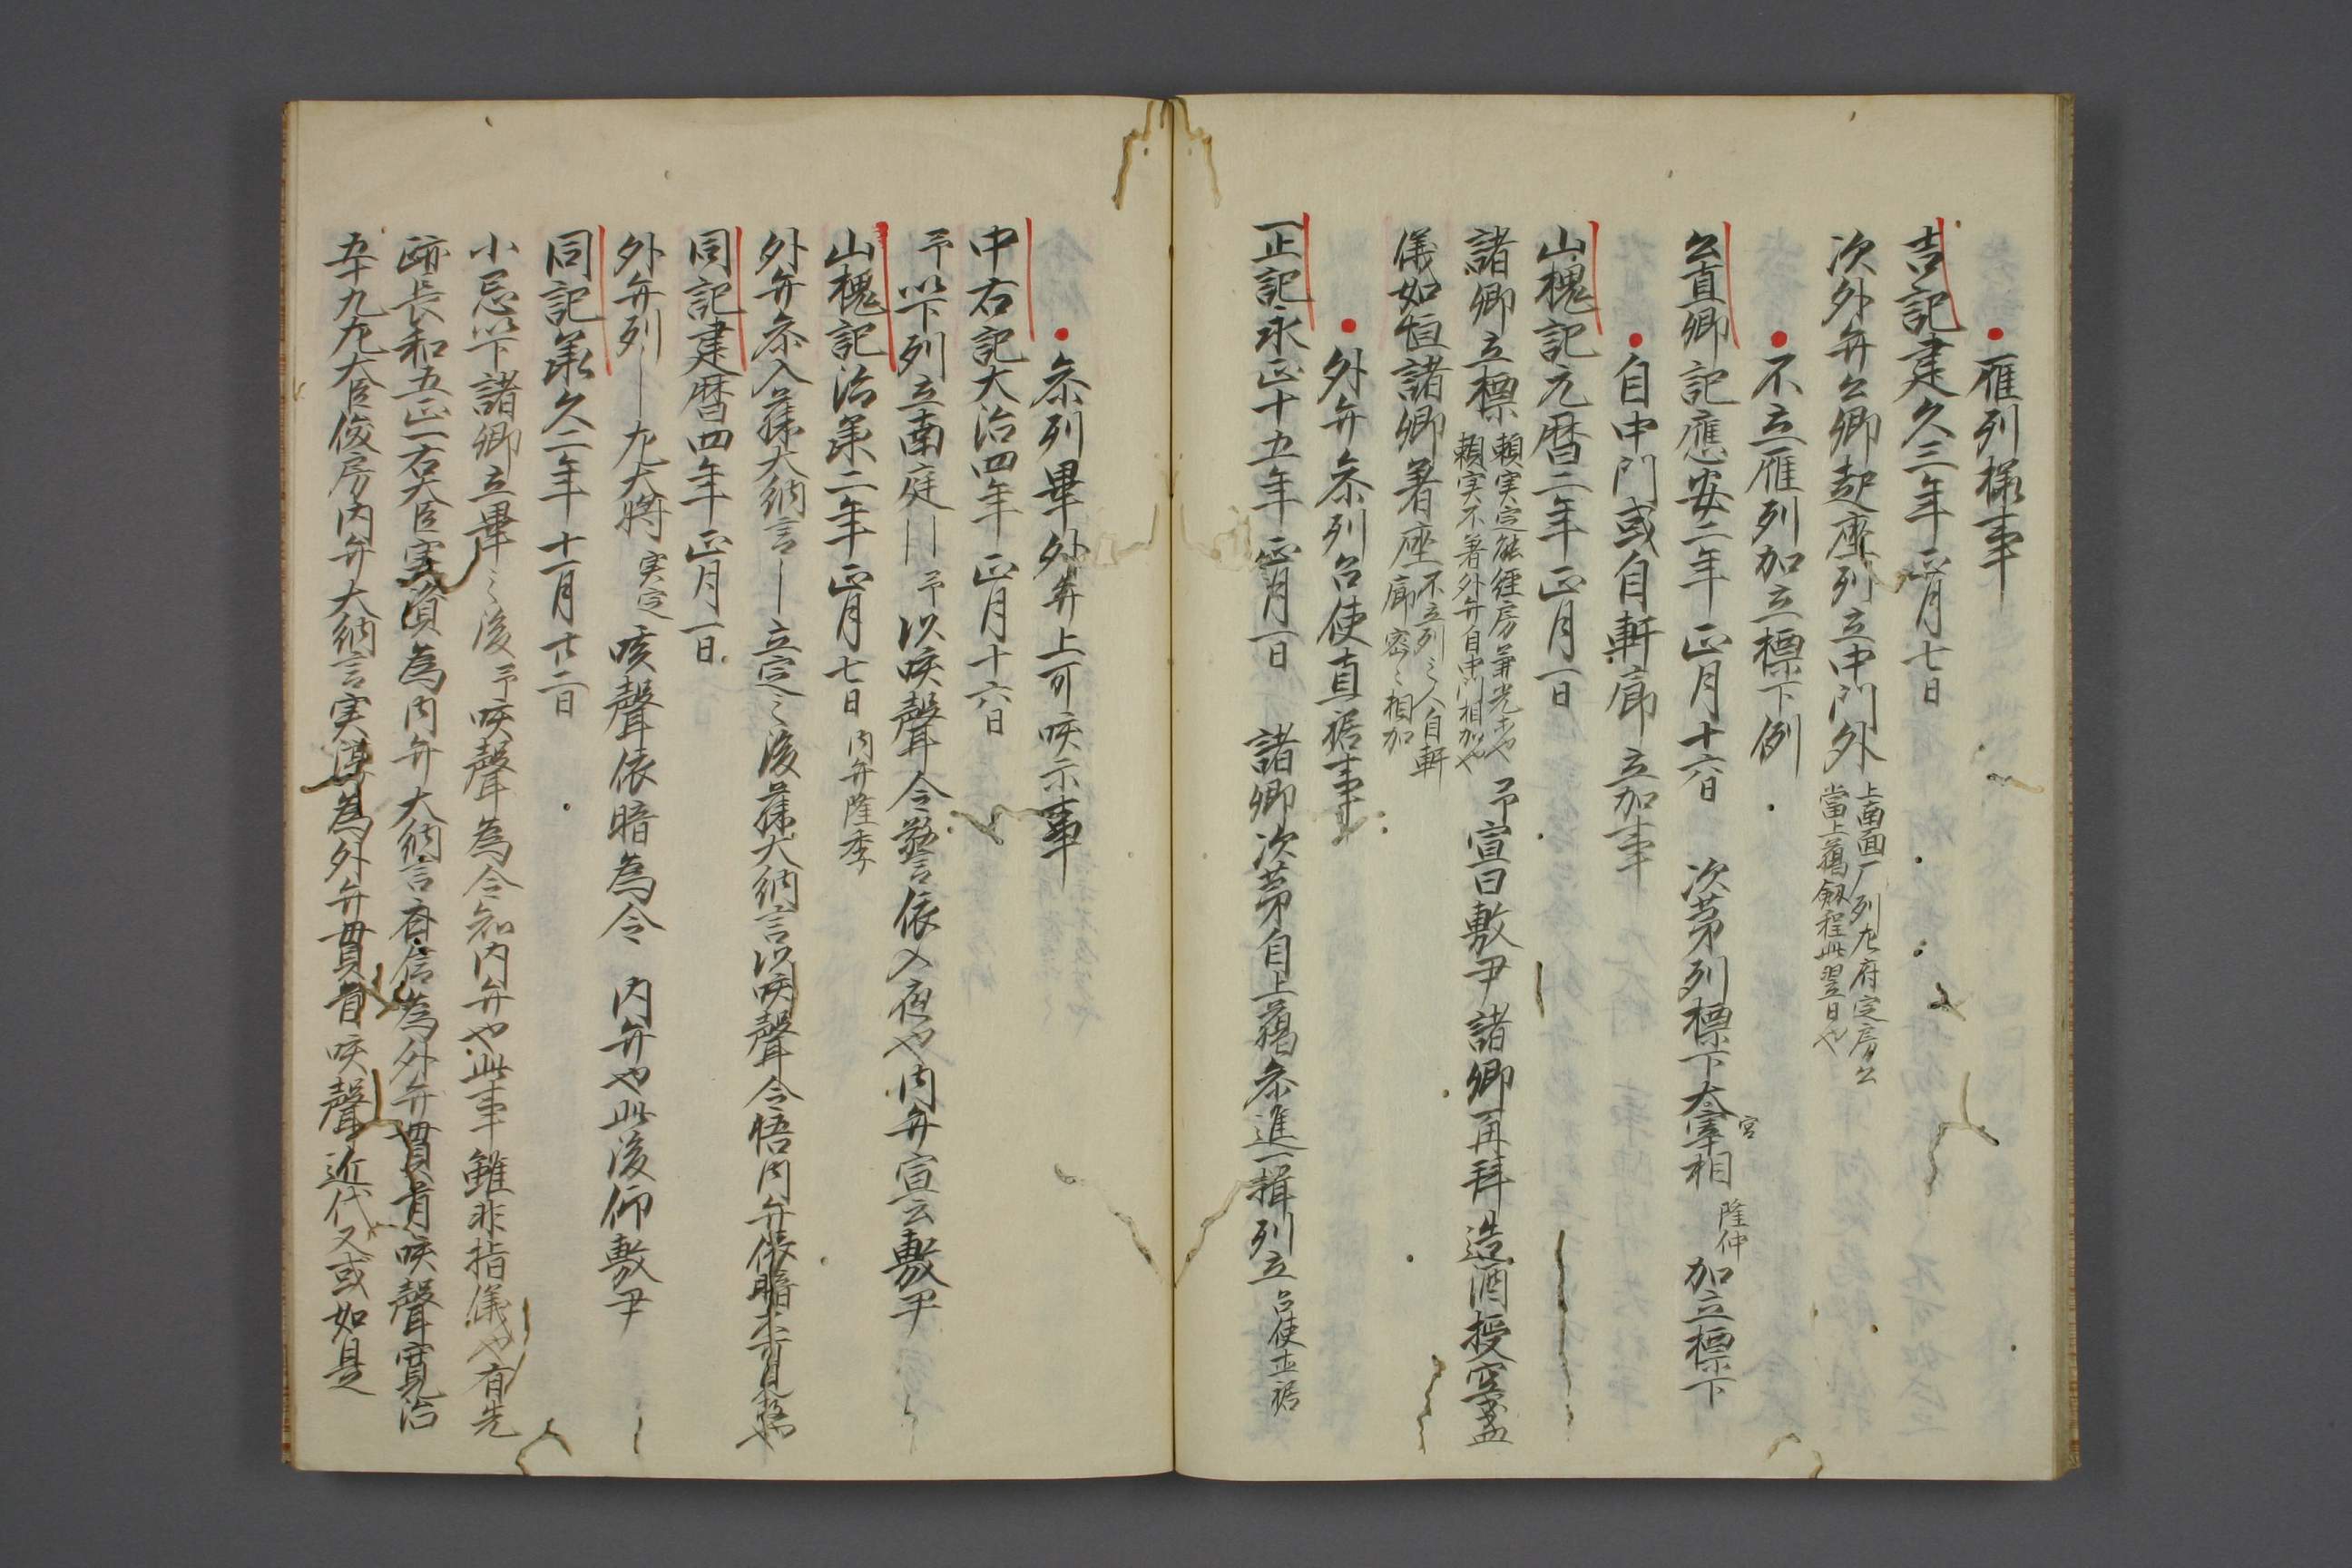 雁列様事
吉記建久三年正月七日
次外弁公卿起座列立中門外上南面厂列左府定房公
當上﨟劔程此翌日也
不立雁列加立標下例
公直卿記應安二年正月十六日 次第列標下大宰相宮隆仲加立標下
自中門或自軒廊立加事
山槐記元暦二年正月一日
諸卿立標頼実定能経房兼光也予宣曰敷尹諸卿再拜造酒授空盞
頼実不著外弁自中門相加也
儀如恒諸卿著座不立列之人自軒
廊密々相加
外弁参列召使直裾事
一止記永正十五年正月一日 諸卿次第自上﨟参進一揖列立召使直裾
参列畢外弁上可咳示事
中右記大治四年正月十六日
予以下列立南庭〡〡予以咳聲令驚言依入夜也内弁宣云敷尹
山槐記治承二年正月七日内弁隆季
外弁参入藤大納言〡立定之後藤大納言以咳聲令悟内弁依暗不有見歟也
同記建暦四年正月一日
外弁列〡左大将実定咳聲依暗為令 内弁也此後仰敷尹
同記承久二年十一月廿二日
小忌以下諸卿立畢之後予咳聲為令知内弁也此事雖非指儀也有先
跡長和五正一右大臣実資為内弁大納言斉信為外弁貫首咳聲寛治
五十九左大臣俊房内弁大納言実季為外弁貫首咳聲近代又或如是